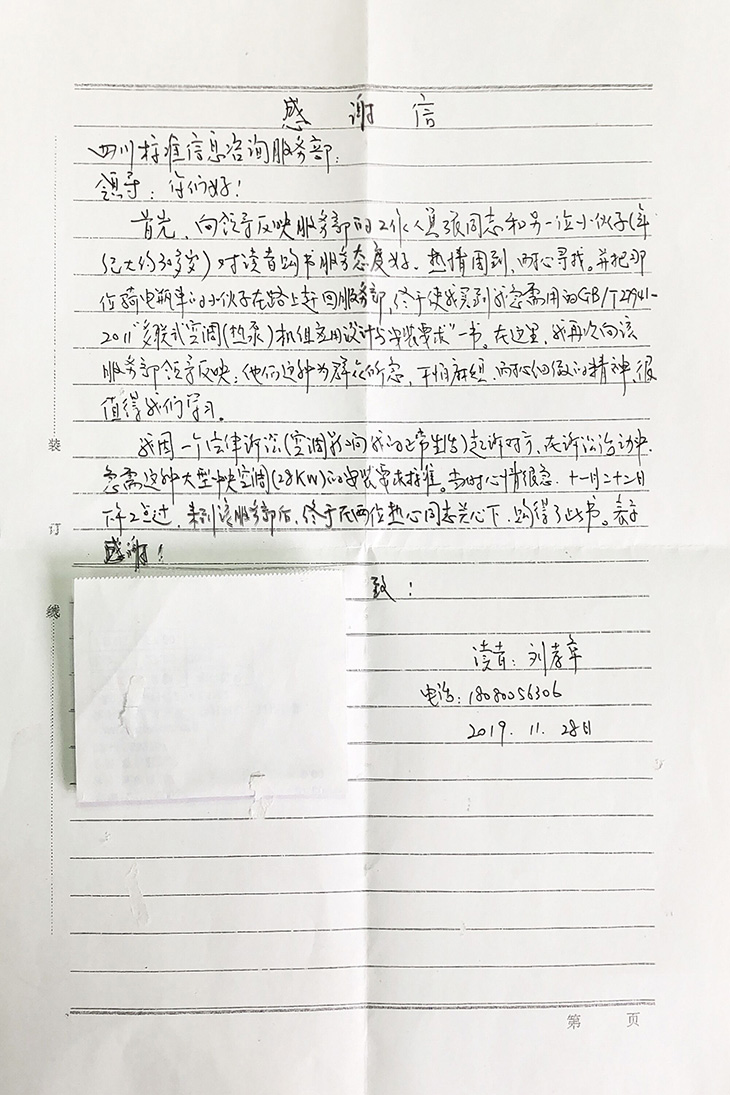 感谢信
四川标准信息咨询服务部:
领导:你们好!
首先,向领导反映服务部的工作人员张同志和另一位小伙子(年
纪大约30多岁)对读者购书服务态度好、热情周到、耐心寻找。并把那
位骑电瓶车的小伙子在路上赶回服务部,终于使我买到我急需用的GB/T27941-
2011"多联式空调(热泵)机组应用设计与安装要求"一书。在这里,我再次向该
服务部领导反映:他们这种为群众所急,不怕麻烦,耐心细致的精神,很
值得我们学习。
我因一个法律诉讼(空调影响我的正常生活)起诉对方,在诉讼活动中,
急需这种大型中央空调(28KW)的安装要求标准。当时心情很急.十一月二十二日
下午2点过,来到该服务部后,终于在两位热心同志关心下,购得了此书。表示
感谢!
致!
读者:刘孝年
电话:18080056306
2019.11.28日
装
订
线
第 页